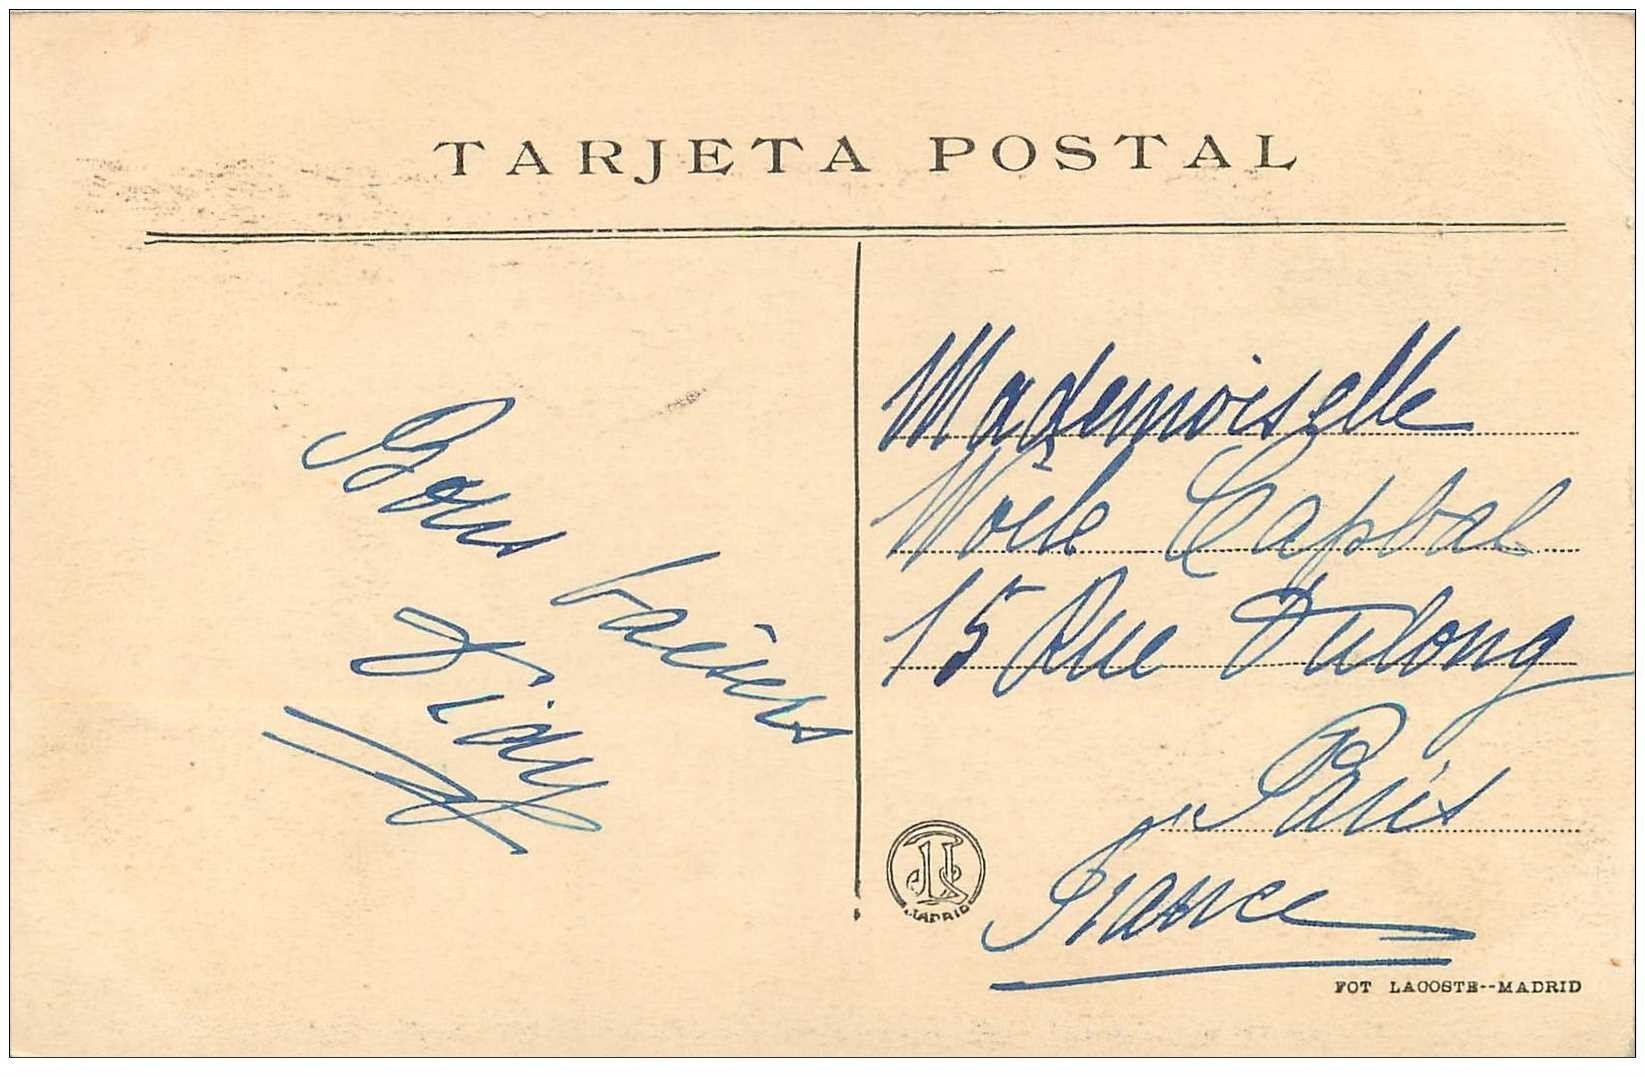 TARJETA POSTAL
Bons baisers
Mademoiselle
Noële Capbal
15 Rue Dulong
Paris
France
MADRID
FOT LACOSTE--MADRID